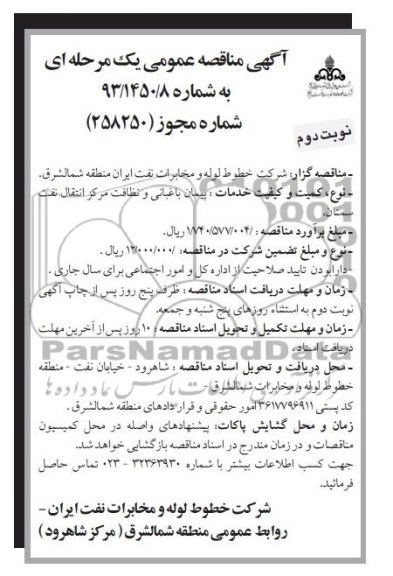 آگهی مناقصه عمومی یک مرحله ای
به شماره ۹۳/۱۴۵۰/۸
شماره مجوز (۲۵۸۲۵۰)
نوبت دوم
- مناقصه گزار: شرکت خطوط لوله و مخابرات نفت ایران منطقه شمالشرق.
- نوع، کمیت و کیفیت خدمات : پیمان باغبانی و نظافت مرکز انتقال نفت
سمنان.
- مبلغ برآورد مناقصه : /۱۷۴۰/۵۷۷/۰۰۴ ریال.
- نوع و مبلغ تضمین شرکت در مناقصه: /۱۲/۰۰۰/۰۰۰ ریال .
- دارا بودن تایید صلاحیت از اداره کل و امور اجتماعی برای سال جاری .
- زمان و مهلت دریافت اسناد مناقصه : ظرف پنج روز پس از چاپ آگهی
نوبت دوم به استثناء روزهای پنج شنبه و جمعه.
- زمان و مهلت تکمیل و تحویل اسناد مناقصه : ۱۰ روز پس از آخرین مهلت
دریافت اسناد.
ParsNamadData
- محل دریافت و تحویل اسناد مناقصه : شاهرود - خیابان نفت - منطقه
خطوط لوله و مخابرات شمالشرق -
کد پستی ۳۶۱۷۷۹۶۹۱۱ امور حقوقی و قراردادهای منطقه شمالشرق .
زمان و محل گشایش پاکات: پیشنهادهای واصله در محل کمیسیون
مناقصات و در زمان مندرج در اسناد مناقصه بازگشایی خواهد شد.
جهت کسب اطلاعات بیشتر با شماره ۳۲۳۶۳۹۳۰ - ۰۲۳ تماس حاصل
فرمائید.
شرکت خطوط لوله و مخابرات نفت ایران -
روابط عمومی منطقه شمالشرق ( مرکز شاهرود )